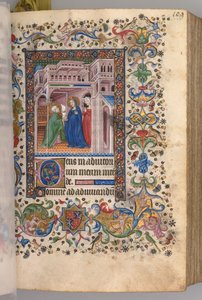 Deus in adiutori
um meum inten
de.
Domine ad adiuvandu